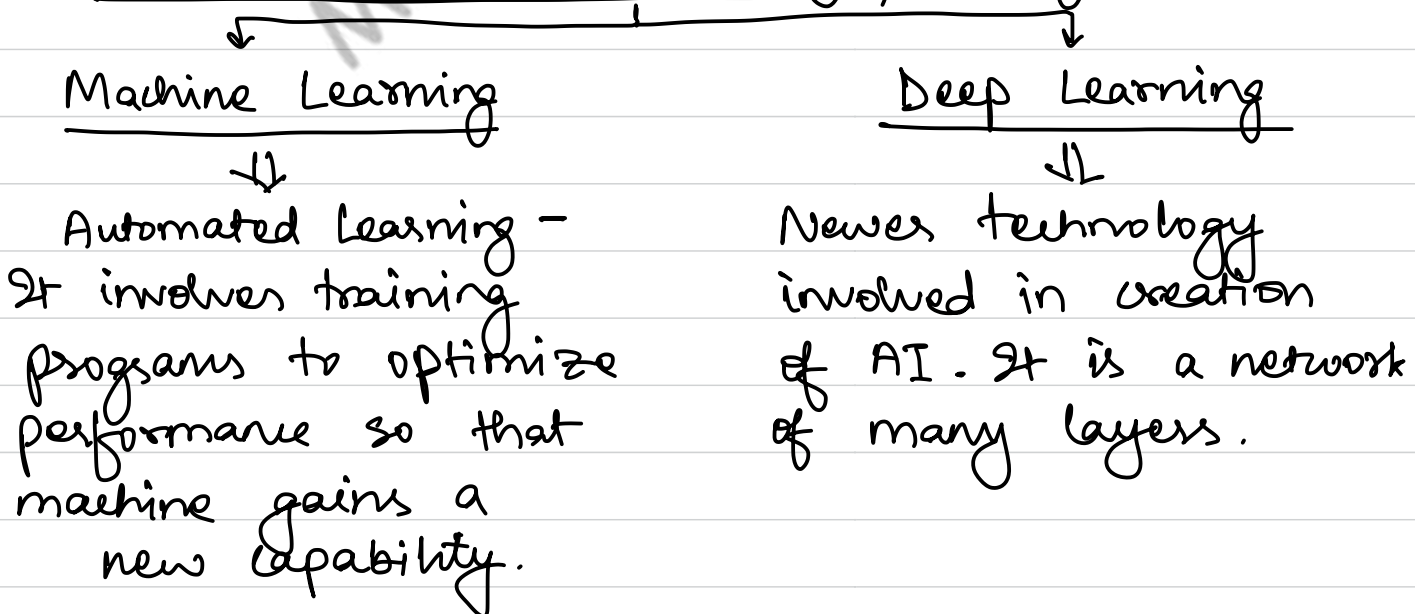 Machine Learning
Automated Learning -
It involves training
programs to optimize
performance so that
machine gains a
new capability.
Deep Learning
Newer technology
involved in creation
of AI. It is a network
of many layers.